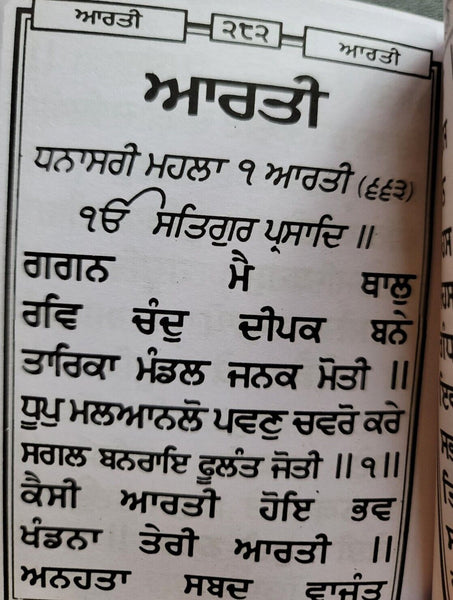 ਆਰਤੀ ੨੮੨ ਆਰਤੀ
ਆਰਤੀ
ਧਨਾਸਰੀ ਮਹਲਾ ੧ ਆਰਤੀ (੬੬੩)
ੴ ਸਤਿਗੁਰ ਪ੍ਰਸਾਦਿ ॥
ਗਗਨ ਮੈ ਥਾਲੁ
ਰਵਿ ਚੰਦੁ ਦੀਪਕ ਬਨੇ
ਤਾਰਿਕਾ ਮੰਡਲ ਜਨਕ ਮੋਤੀ ॥
ਧੂਪੁ ਮਲਆਨਲੋ ਪਵਣੁ ਚਵਰੋ ਕਰੇ
ਸਗਲ ਬਨਰਾਇ ਫੂਲੰਤ ਜੋਤੀ ॥੧॥
ਕੈਸੀ ਆਰਤੀ ਹੋਇ ਭਵ
ਖੰਡਨਾ ਤੇਰੀ ਆਰਤੀ ॥
ਅਨਹਤਾ ਸਬਦ ਵਾਜੰਤ